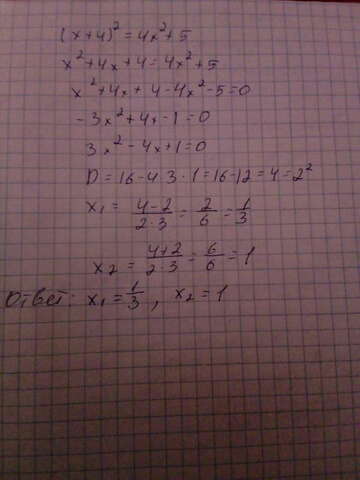 (x+4)² = 4x²+5
x²+4x+4=4x²+5
x²+4x+4-4x²-5=0
-3x²+4x-1=0
3x²-4x+1=0
D=16-4·3·1=16-12=4=2²
x₁= (4-2)/(2·3) = 2/6 = 1/3
x₂= (4+2)/(2·3) = 6/6 = 1
Ответ: x₁=1/3, x₂=1